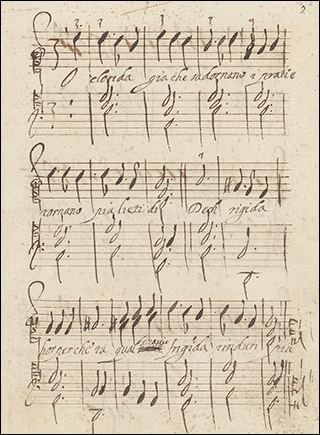 2
O clorida già che sadornano i prati e
tornano più lieti di Deh rigida
hor perche in qual frigida induri più